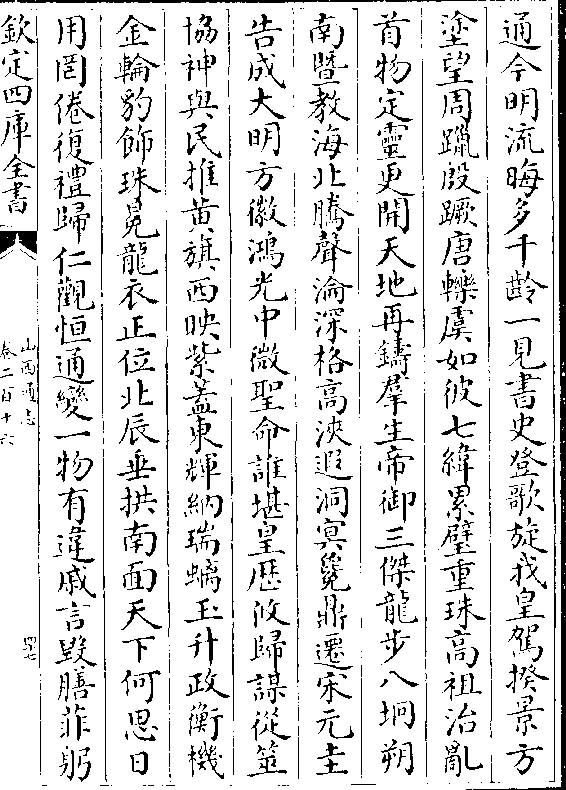 通今明流晦多千齡一見書史登歌旋我皇駕揆景方
塗望周躐殷蹶唐轢虞如彼七緯累璧重珠高祖治亂
首物定靈更開天地再鑄羣生帝御三傑龍步八坰朔
南暨教海北騰聲淪深格高浹遐洞冥㲋鼎遷宋元圭
告成大明方徽鴻光中微聖命誰堪皇厯攸歸謀從筮
協神與民推黄旗西映紫蓋東輝納瑞螭玉升政衡機
金輪豹飾珠冕龍衣正位北辰垂拱南面天下何思日
用罔倦復禮歸仁觀恒通變一物有違戚言毁膳菲躬
欽定四庫全書
山西通志
卷二百十六